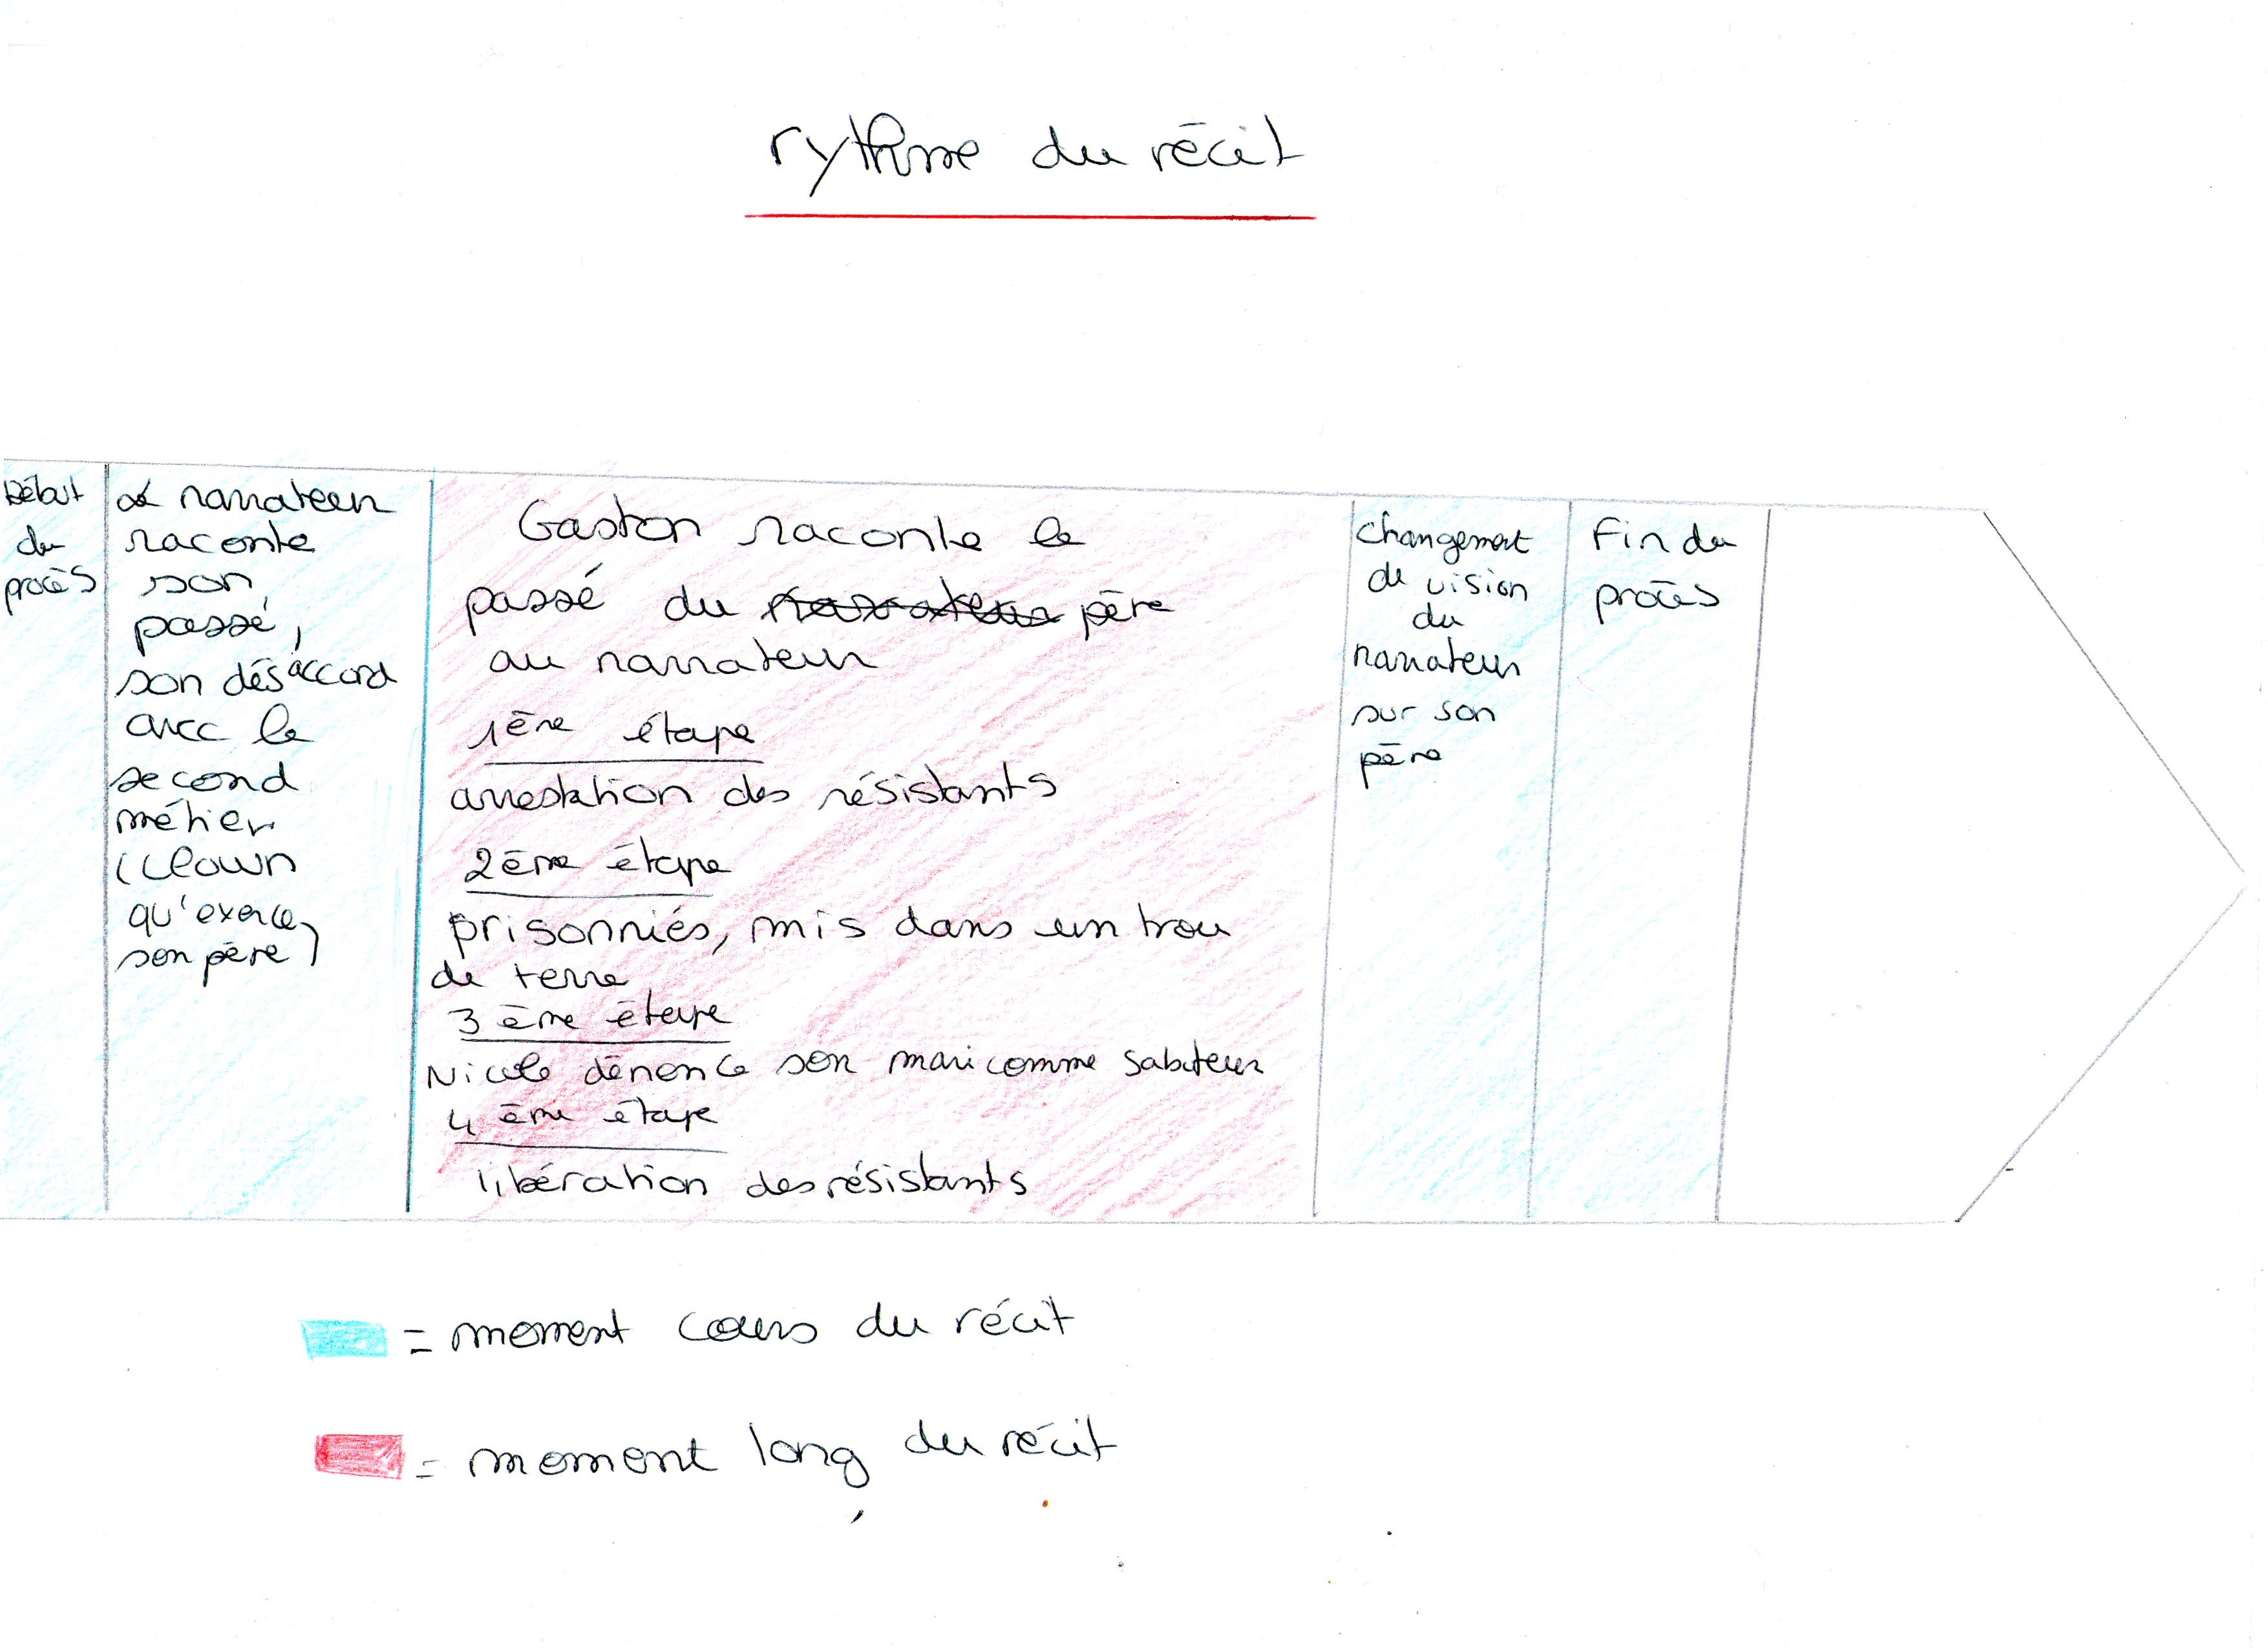 rythme du récit
Début
du
procès
le narrateur
raconte
son
passé,
son désaccord
avec le
second
métier
(clown
qu'exerce
son père)
Gaston raconte le
passé du narrateur père
au narrateur
1ère étape
arrestation des résistants
2ème étape
prisonniés, mis dans un trou
de terre
3ème étape
Nicole dénonce son mari comme saboteur
4ème étape
libération des résistants
changement
de vision
du
narrateur
sur son
père
Fin du
procès
= moment cours du récit
= moment long du récit